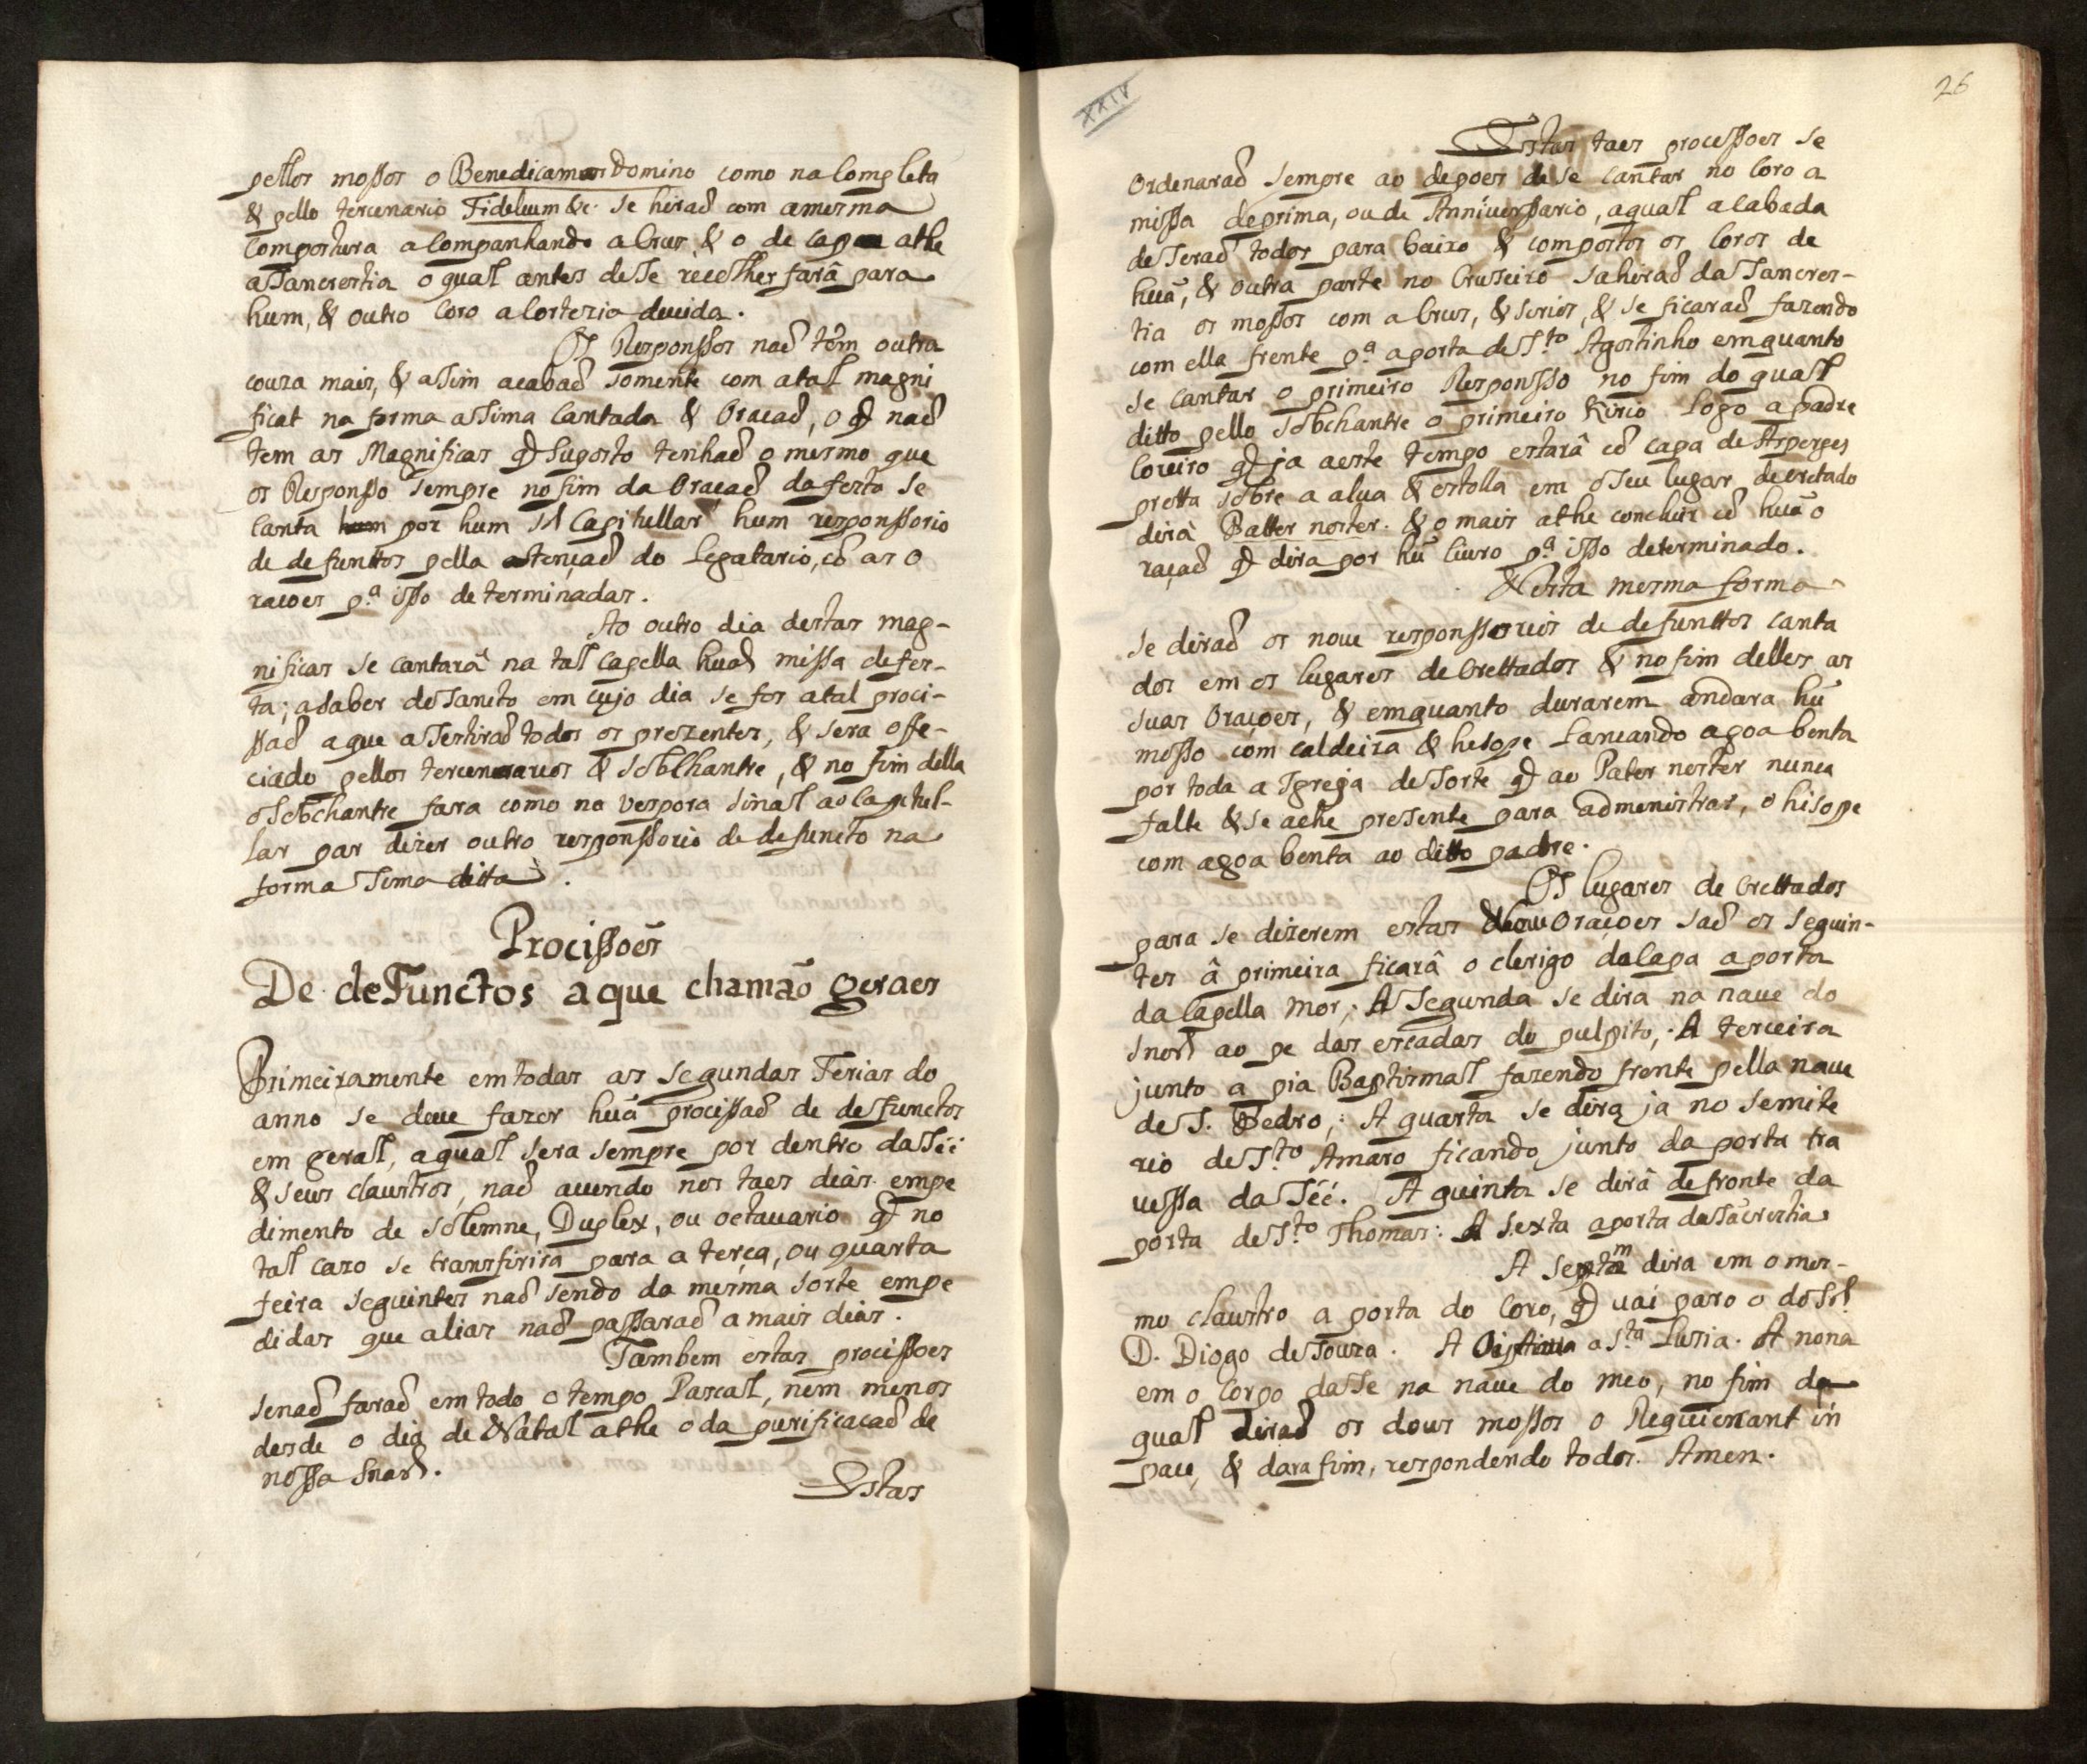 pellos mossos o Benedicamus Domino como na Completa
& pello tercenario Fidelium &c. se hiraõ com a mesma
Compostura acompanhando a Crus, & o de capa athe
a Sancrestia o qual antes de se recolher farâ para
hum, & outro Coro a Cortezia devida.
Os Responssos naõ têm outra
couza mais, & assim acabaõ somente com a tal magni
ficat na forma assima Cantada & Oracaõ, o q̃ naõ
tem as Magnificas q̃ suposto tenhaõ o mesmo que
os Responsso sempre no fim da Oraçaõ da festa se
Canta hum por hum Sr Capitullar hum responssorio
de defunttos pella atençaõ do Legatario, cõ as O
racoes p.ª isso determinadas.
Ao outro dia destas mag-
nificas se cantarâ na tal Capella huaã missa de fes-
ta; a saber do Sancto em cujo dia se fes a tal proci-
ssaõ a que assestiraõ todos os prezentes, & sera offe-
ciado pellos tercenarios & Sobchantre, & no fim della
o Sobchantre fara como na vespora sinal ao Capitul-
lar par dizer outro responssorio de defuncto na
forma sima ditta.
Procissoẽs
De defunctos a que chamaõ geraes
Primeiramente em todas as Segundas Ferias do
anno se deve fazer huã procissaõ de defunctos
em geral, a qual sera sempre por dentro da Séé
& seus claustros, naõ avendo nos taes dias empe
dimento de solemne, Duplex, ou octavario q̃ no
tal cazo se transfirira para a terça, ou quarta
feira seguintes naõ sendo da mesma sorte empe
didas que alias naõ passaraõ a mais dias.
Tambem estas procissoes
se naõ faraõ em todo o tempo Pascal, nem menos
desde o dia de Natal athe o da purificacaõ de
nossa Snarã.
Estas
XXIV
26
Estas taes processoes se
Ordenaraõ sempre ao depoes de se cantar no Coro a
missa de prima, ou de Anniverssario, a qual acabada
deseraõ todos para baixo & compostos os Coros de
huã, & outra parte no Cruseiro sahiraõ da Sancres-
tia os mossos com a Crus, & sirios, & se ficaraõ fazendo
com ella frente p.ª a porta de S.to Agostinho emquanto
se cantar o primeiro Responsso no fim do qual
ditto pello Sobchantre o primeiro Kirio Logo a padre
Coreiro q̃ ja a este tempo estarâ cõ capa de Asperges
pretta sobre a alva & estolla em o seu lugar decretado
dirâ Patter noster. & o mais athe concluir cõ huã o
raçaõ q̃ dira por hũ livro p.ª isso determinado.
Nesta mesma forma
se diraõ os nove responssorios de defunttos canta
dos em os lugares decrettados & no fim delles as
suas Oraçoes, & emquanto durarem andara hũ
mosso com caldeira & hesope Lancando agoa benta
por toda a Igreja de sorte q̃ ao Pater noster nunca
falte & se ache presente para admenistrar, o hisope
com agoa benta ao ditto padre.
Os lugares decrettados
para se dizerem estas Nove Oraçoes saõ os seguin-
tes â primeira ficarâ o clerigo da Capa a porta
da Capella Mor; A Segunda se dira na nave do
Snor ao pe das escadas do pulpito; A terceira
junto a pia Baptismal fazendo frente pella nave
de S. Pedro; A quarta se dira ja no semite
rio de S.to Amaro ficando junto da porta tra
vessa da Séé. A quinta se dirâ defronte da
porta de S.to Thomas: A Sexta a porta da Sacrestia
A septim dira em o mes-
mo claustro a porta do Coro, q̃ vai paro o do Sr.
D. Diogo de Souza. A Oittava a S.ta Luzia. A nona
em o Corpo da Se na nave do meo, no fim da
qual diraõ os dous mossos o Requiescant in
pace, & dara fim, respondendo todos. Amen.